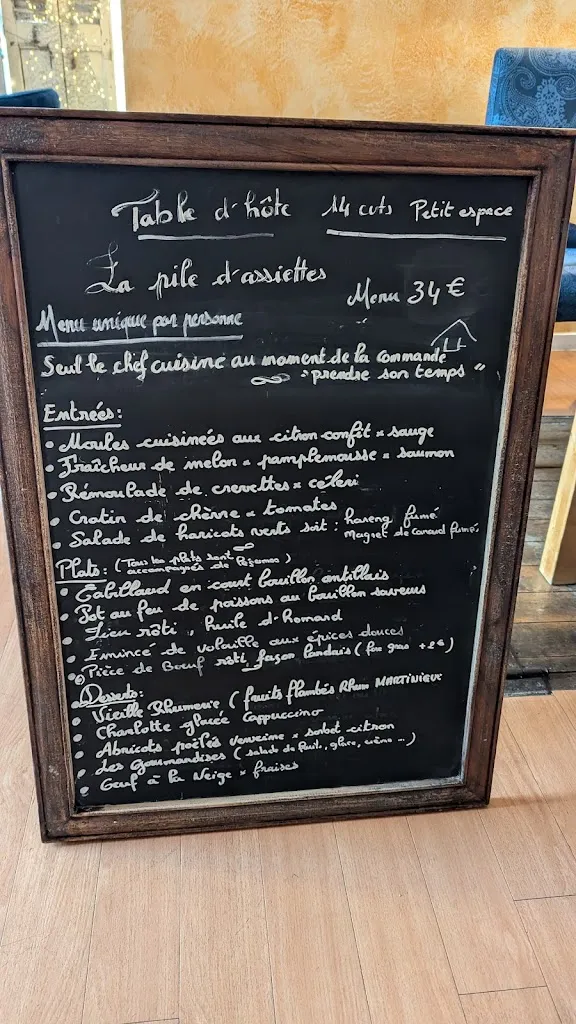 Table d'hôte 14 cvts Petit espace
La pile d'assiettes
Menu 34 €
Menu unique par personne
Seul le chef cuisine au moment de la commande
"prendre son temps"
Entrées:
• Moules cuisinées aux citron confit × sauge
• Fraîcheur de melon × pamplemousse × saumon
• Rémoulade de crevettes × céleri
• Crotin de chèvre × tomates
• Salade de haricots verts soit : hareng fumé
Magret de Canard fumés
Plats: (Tous les plats sont accompagnés de légumes)
• Cabillaud en court bouillon antillais
• Pot au feu de poissons au bouillon saveurs
• Lieu rôti, huile d'Homard
• Emincé de volaille aux épices douces
• Pièce de Bœuf rôti façon landais (foie gras +2€)
Desserts:
• Vieille Rhumerie (fruits flambés Rhum MARTINIQUE
• Charlotte glacée Cappuccino
• Abricots poêlés verveine × sorbet citron
• Les Gourmandises (salade de fruits, glace, crème ...)
• Oeuf à la Neige × fraises